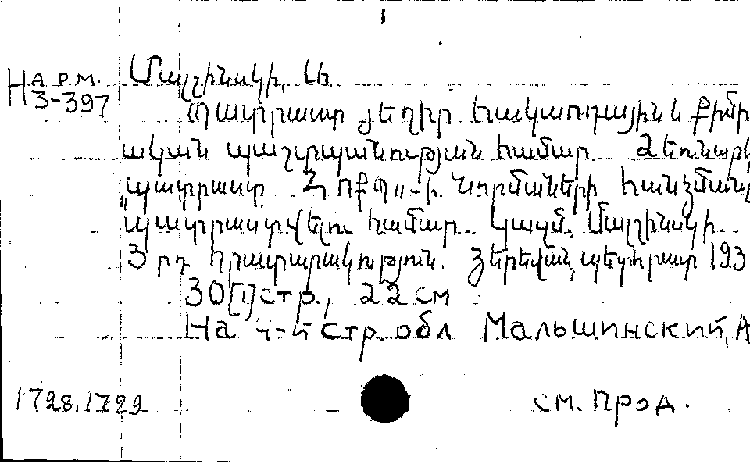 На арм.
З-397
Մալշինսկի, Ա.
Պատրաստ յեղիր հակաոդային և քիմի
ական պաշտպանության համար. Ձեռնարկ
„պատրաստ ՀՈՔՊ“-ի նորմաների հանձման
պատրաստվելու համար. Կազմ. Մալշինսկի.
3 րդ հրատարակություն. Յերեվան, պետհրատ 193
30[1] стр., 22 см
На 4-й стр. обл Мальшинский, А
1728.1729
см. прод.